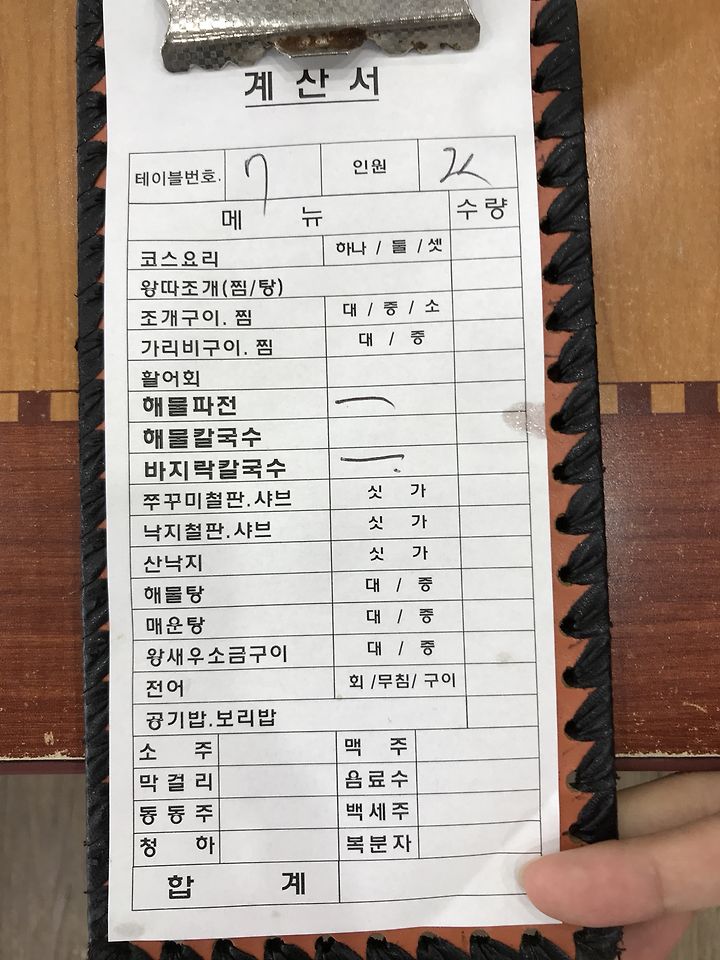 계 산 서
테이블번호. 7 인원 2
메 뉴 수량
코스요리 하나 / 둘 / 셋
왕따조개(찜/탕)
조개구이. 찜 대 / 중 / 소
가리비구이. 찜 대 / 중
활어회
해물파전 ㅡ
해물칼국수
바지락칼국수 ㅡ
쭈꾸미철판.샤브 싯 가
낙지철판.샤브 싯 가
산낙지 싯 가
해물탕 대 / 중
매운탕 대 / 중
왕새우소금구이 대 / 중
전어 회 /무침/ 구이
공기밥.보리밥
소 주 맥 주
막걸리 음료수
동동주 백세주
청 하 복분자
합 계